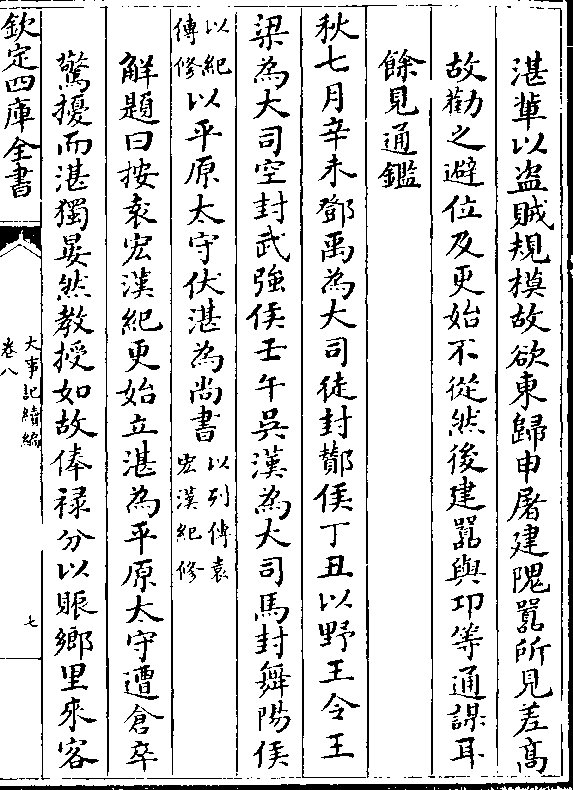 湛輩以盗賊規模故欲東歸申屠建隗囂所見差髙
故勸之避位及更始不從然後建囂與卬等通謀耳
餘見通鑑
秋七月辛未鄧禹為大司徒封酇侯丁丑以野王令王
梁為大司空封武強侯壬午吳漢為大司馬封舞陽侯
以紀
傳修
以平原太守伏湛為尚書
以列傳袁
宏漢紀修
解題曰按袁宏漢紀更始立湛為平原太守遭倉卒
驚擾而湛獨晏然教授如故俸禄分以賑鄉里來客
欽定四庫全書
大事記續編
卷八
七